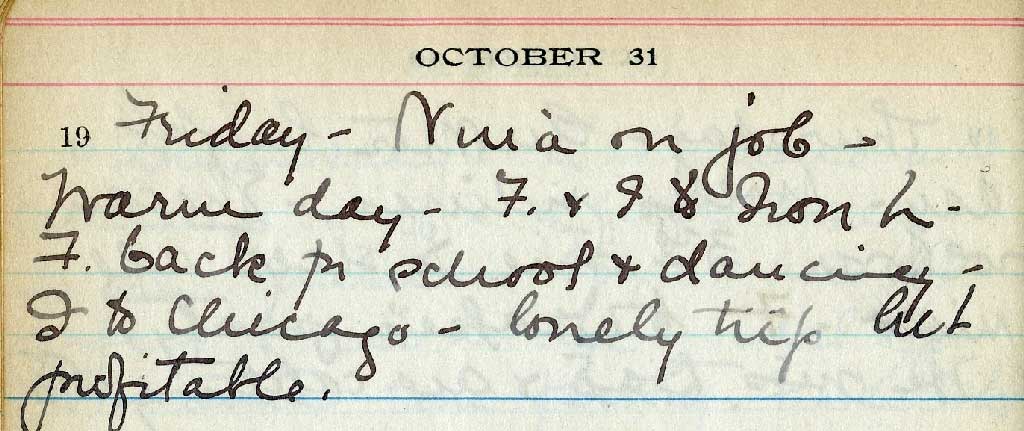 OCTOBER 31
19 Friday - Nina on job -
Warm day - F. & I to Iron h -
F. back for school & dancing -
I to Chicago - lonely trip but
profitable.